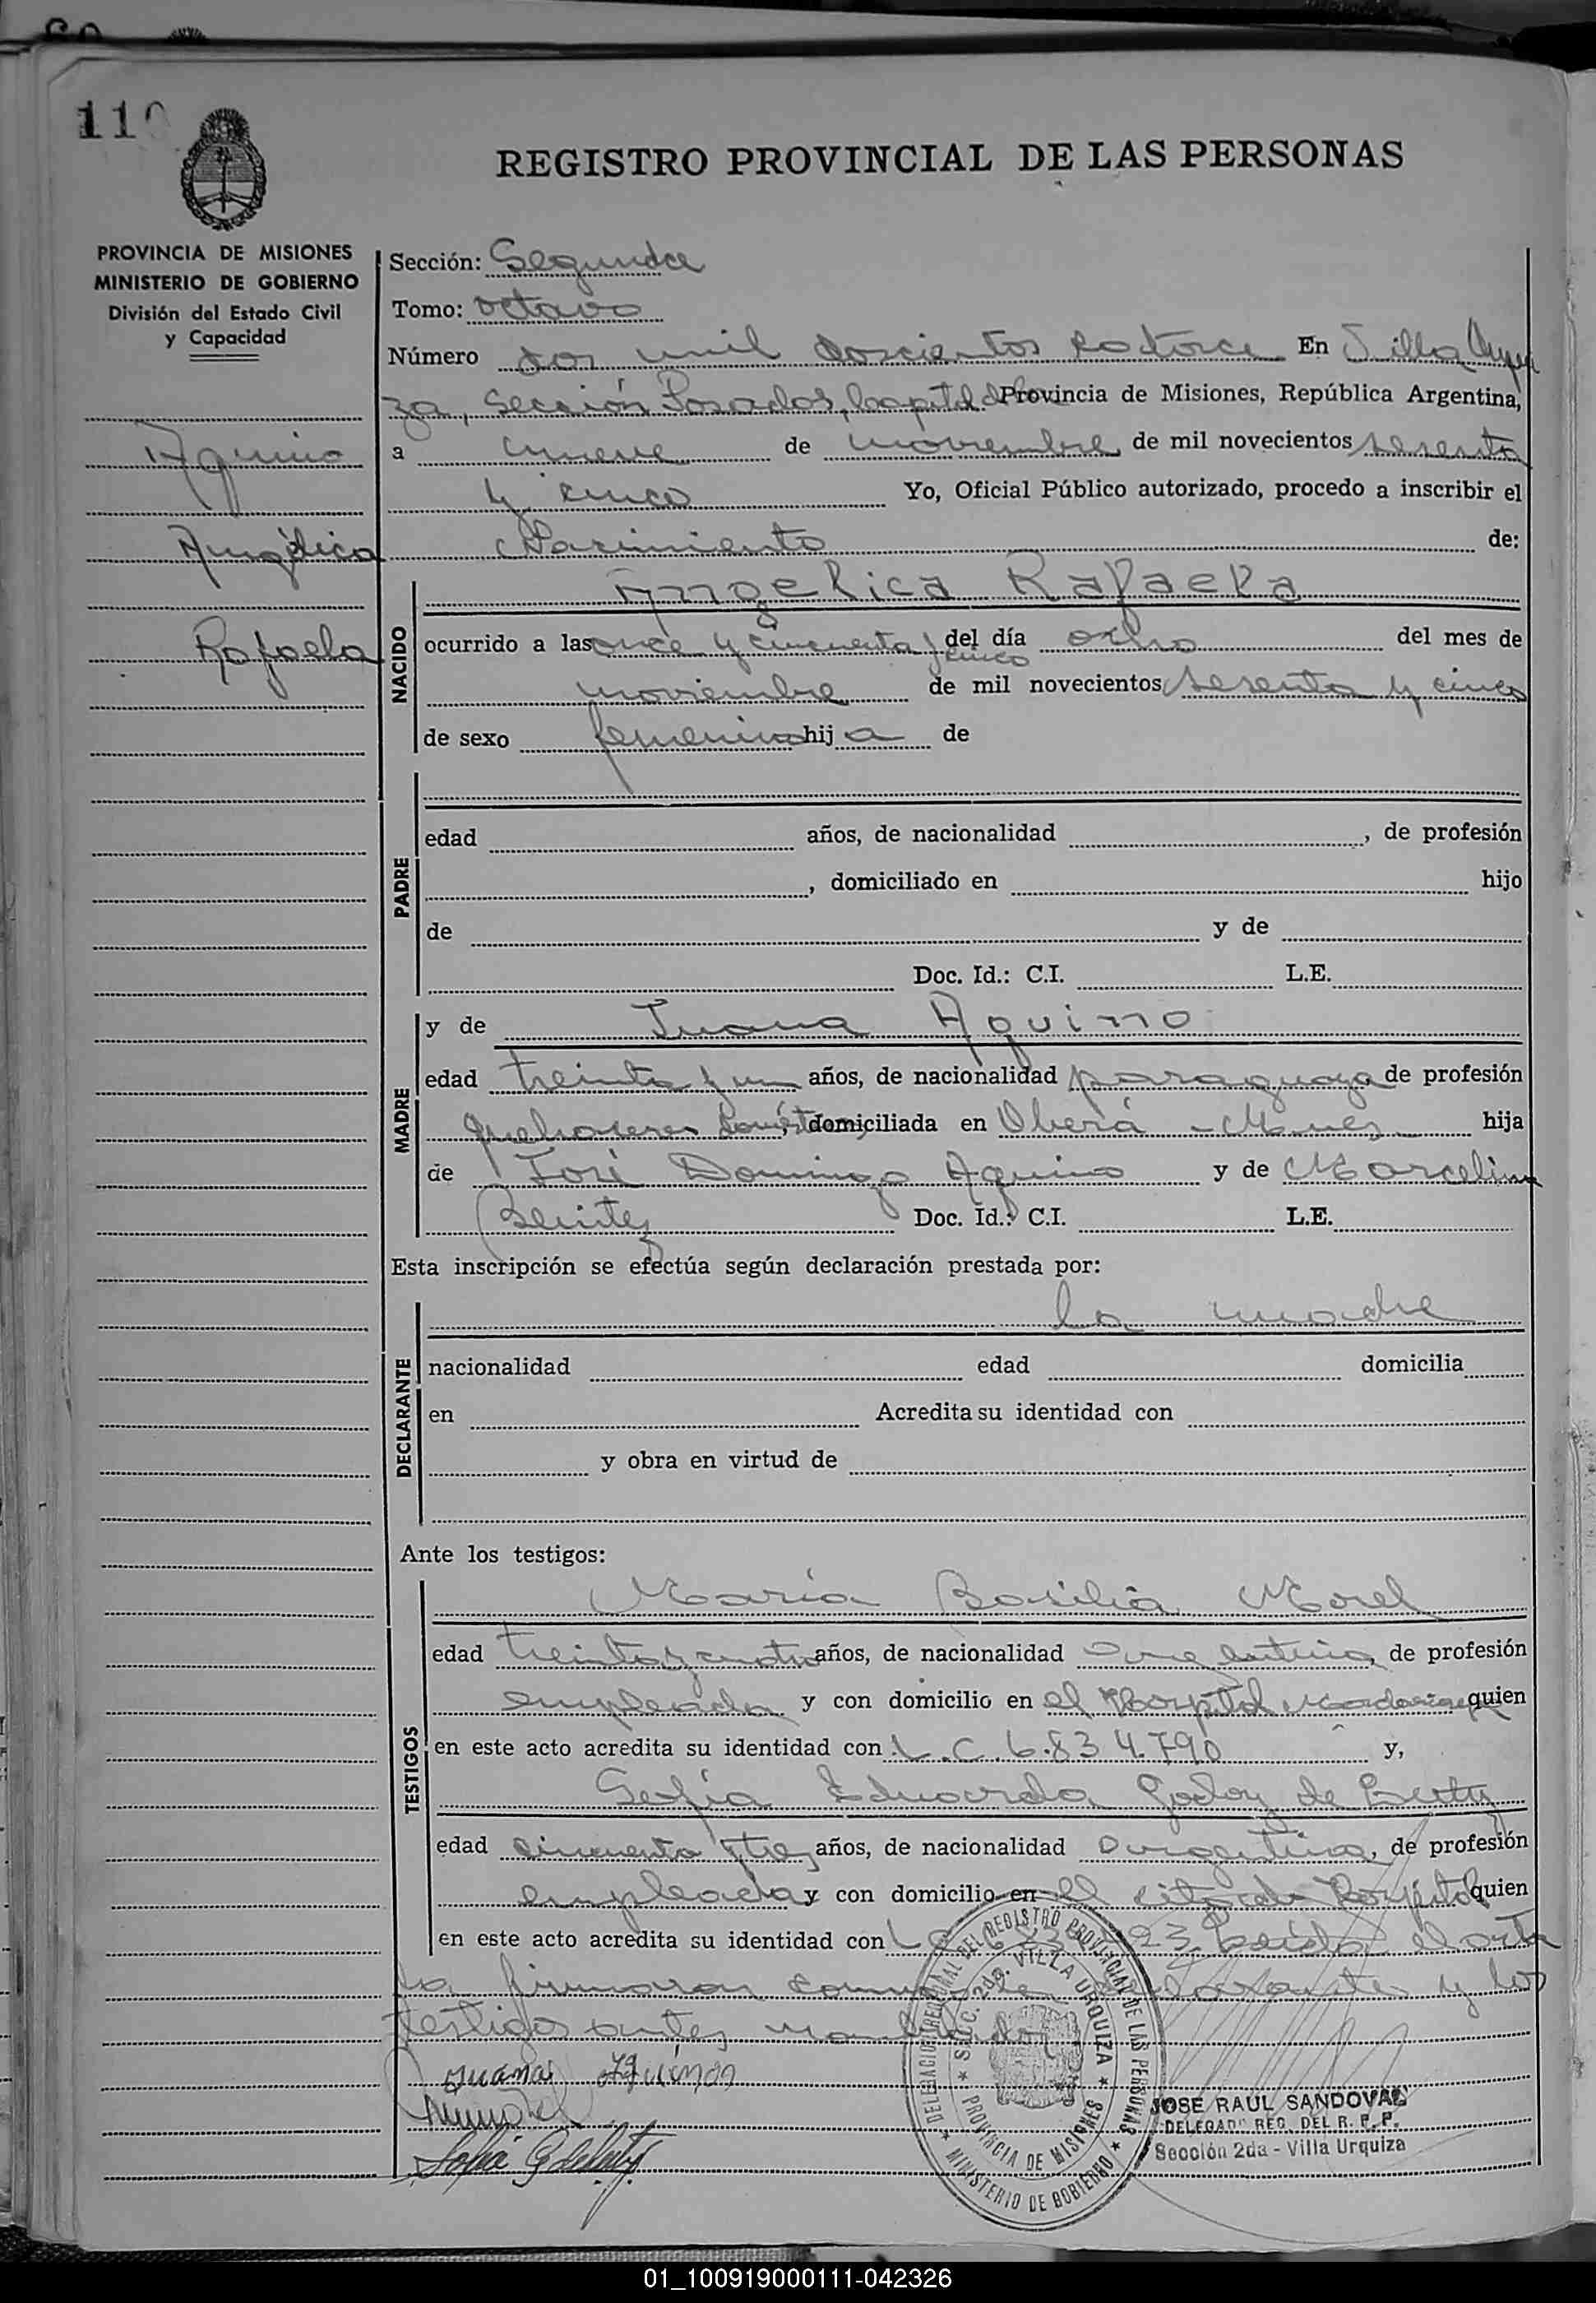 110
REGISTRO PROVINCIAL DE LAS PERSONAS
PROVINCIA DE MISIONES
MINISTERIO DE GOBIERNO
División del Estado Civil
y Capacidad
Aquino
Angélica
Rafaela
Sección: Segunda
Tomo: octavo
Número dos mil doscientos catorce En Villa Urqui
za, Sección Posadas, Capital de la Provincia de Misiones, República Argentina,
a nueve de noviembre de mil novecientos sesenta
y cinco Yo, Oficial Público autorizado, procedo a inscribir el
Nacimiento de:
NACIDO
Angelica Rafaela
ocurrido a las once y cincuenta y cinco del día ocho del mes de
noviembre de mil novecientos sesenta y cinco
de sexo femenino hija de
PADRE
edad años, de nacionalidad , de profesión
, domiciliado en hijo
de y de
Doc. Id.: C.I. L.E.
MADRE
y de Juana Aquino
edad treinta y un años, de nacionalidad paraguaya de profesión
quehaceres domést. domiciliada en Oberá - Mnes hija
de José Domingo Aquino y de Marcelina
Benitez Doc. Id.: C.I. L.E.
Esta inscripción se efectúa según declaración prestada por:
DECLARANTE
la madre
nacionalidad edad domicilia
en Acredita su identidad con
y obra en virtud de
Ante los testigos:
TESTIGOS
María Basilia Morel
edad treinta y cuatro años, de nacionalidad argentina, de profesión
empleada y con domicilio en el Hospital Madariaga quien
en este acto acredita su identidad con L.C. 6.834.790 y,
Sofía Eduarda Godoy de
edad cincuenta y tres años, de nacionalidad argentina, de profesión
empleada y con domicilio en el citado Hospital quien
en este acto acredita su identidad con LC 23. Leída el acta
la firmaron y los
testigos antes
Juana Aquino
DELEGACION REGIONAL DEL REGISTRO PROVINCIAL DE LAS PERSONAS
MINISTERIO DE GOBIERNO
SECC. 2da. VILLA URQUIZA
PROVINCIA DE MISIONES
JOSE RAUL SANDOVAL
DELEGADO REG. DEL R. P. P.
Sección 2da - Villa Urquiza
01_100919000111-042326